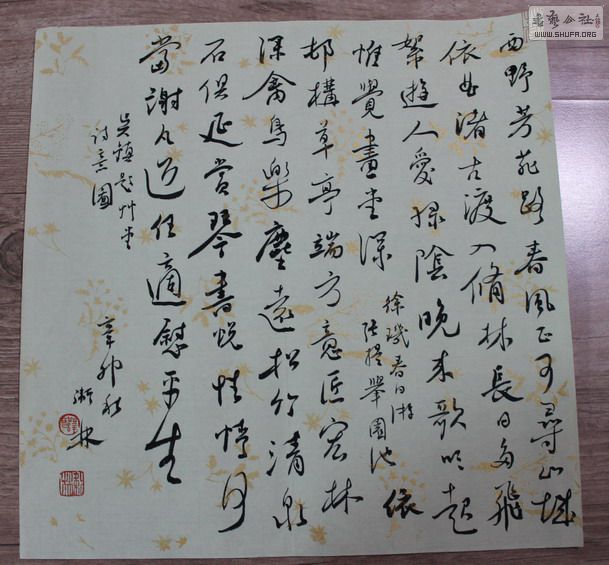 西野芳菲路春風正可尋山城
依曲渚古渡入脩林長日多飛
絮遊人愛綠陰晚來歌吹起
惟覺畫堂深
徐璣春日游
張提舉園池
依
邨構草亭端方意匠宏林
深禽鳥樂塵遠松竹清泉
石俱延賞琴書悅性情何
當謝凡近任適慰平生
吳鎮題艸堂
詩意圖
辛卯秋
林
書藝公社
WWW.SHUFA.ORG